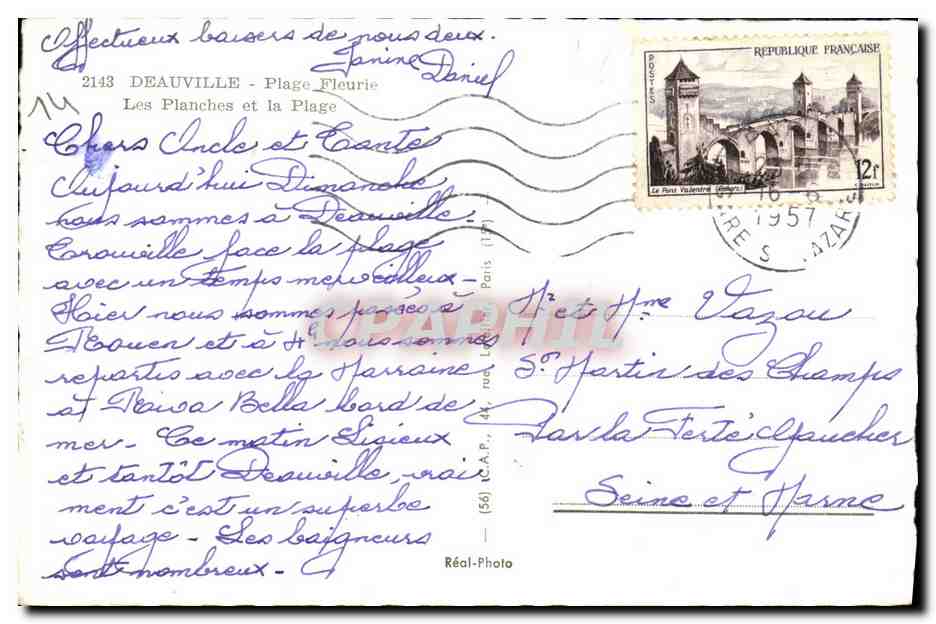 Affectueux baisers de nous deux.
Janine Daniel
2143 DEAUVILLE - Plage Fleurie
Les Planches et la Plage
14
Chers Oncle et Tante
Aujourd'hui Dimanche
nous sommes à Deauville
Trouville face la plage
avec un temps merveilleux -
Hier nous sommes passés à
Rouen et à 4h nous sommes
repartis avec la Marraine
à Riva Bella bord de
mer - Ce matin Lisieux
et tantôt Deauville, vrai
ment c'est un superbe
voyage - Les baigneurs
sont nombreux -
(56) C.A.P., 44, rue Paris (15e)
Réal-Photo
CPAPHIL
POSTES
REPUBLIQUE FRANÇAISE
Le Pont Valentré (Cahors)
12f
16 6
1957
GARE S LAZARE
Mr et Mme Vazou
St Martin des Champs
Par la Ferté Gaucher
Seine et Marne